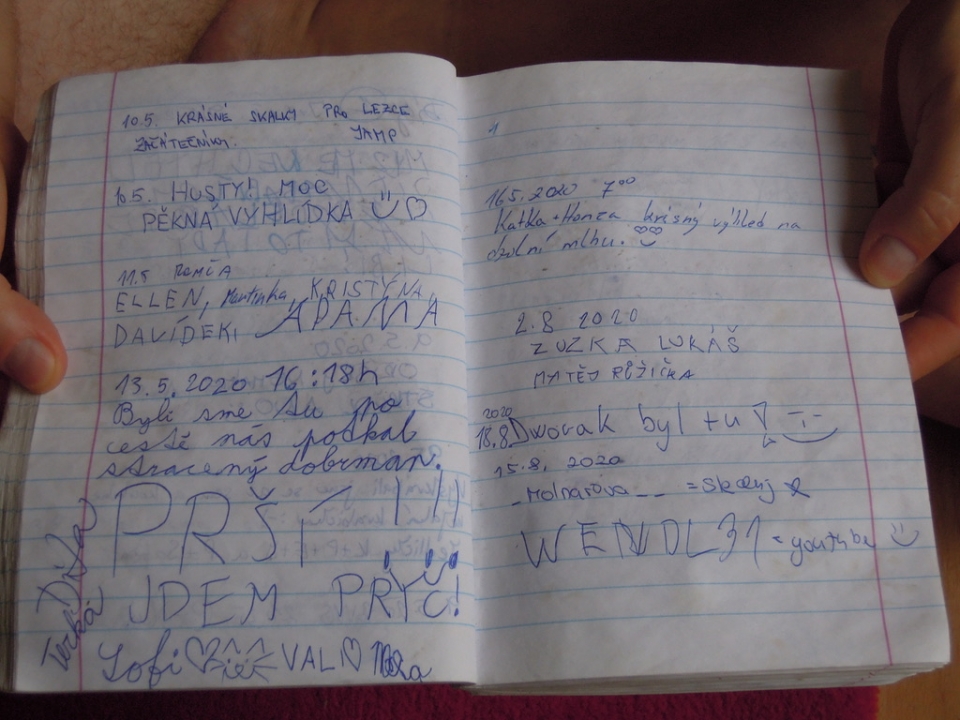 10.5. KRÁSNÉ SKALKY PRO LEZCE
ZAČÁTEČNÍKY. JAMP
HUSTÝ! MOC
PĚKNÁ VYHLÍDKA
11.5
ELLEN, Martinka, KRISTÝNA,
DAVÍDEK, ADAMA
13.5.2020 16:18h
Byli sme tu po
cestě nás potkal
ztracený dobrman.
PRŠÍ !!!
JDEM PRYČ!
Terka
Sofi VAL
16.5.2020 7⁰⁰
Katka + Honza krásný výhled na
mlhu.
2.8 2020
ZUZKA LUKÁŠ
MATĚJ RŮŽIČKA
2020
18.8. Dworak byl tu
15.8. 2020
WENDL31 = youtube